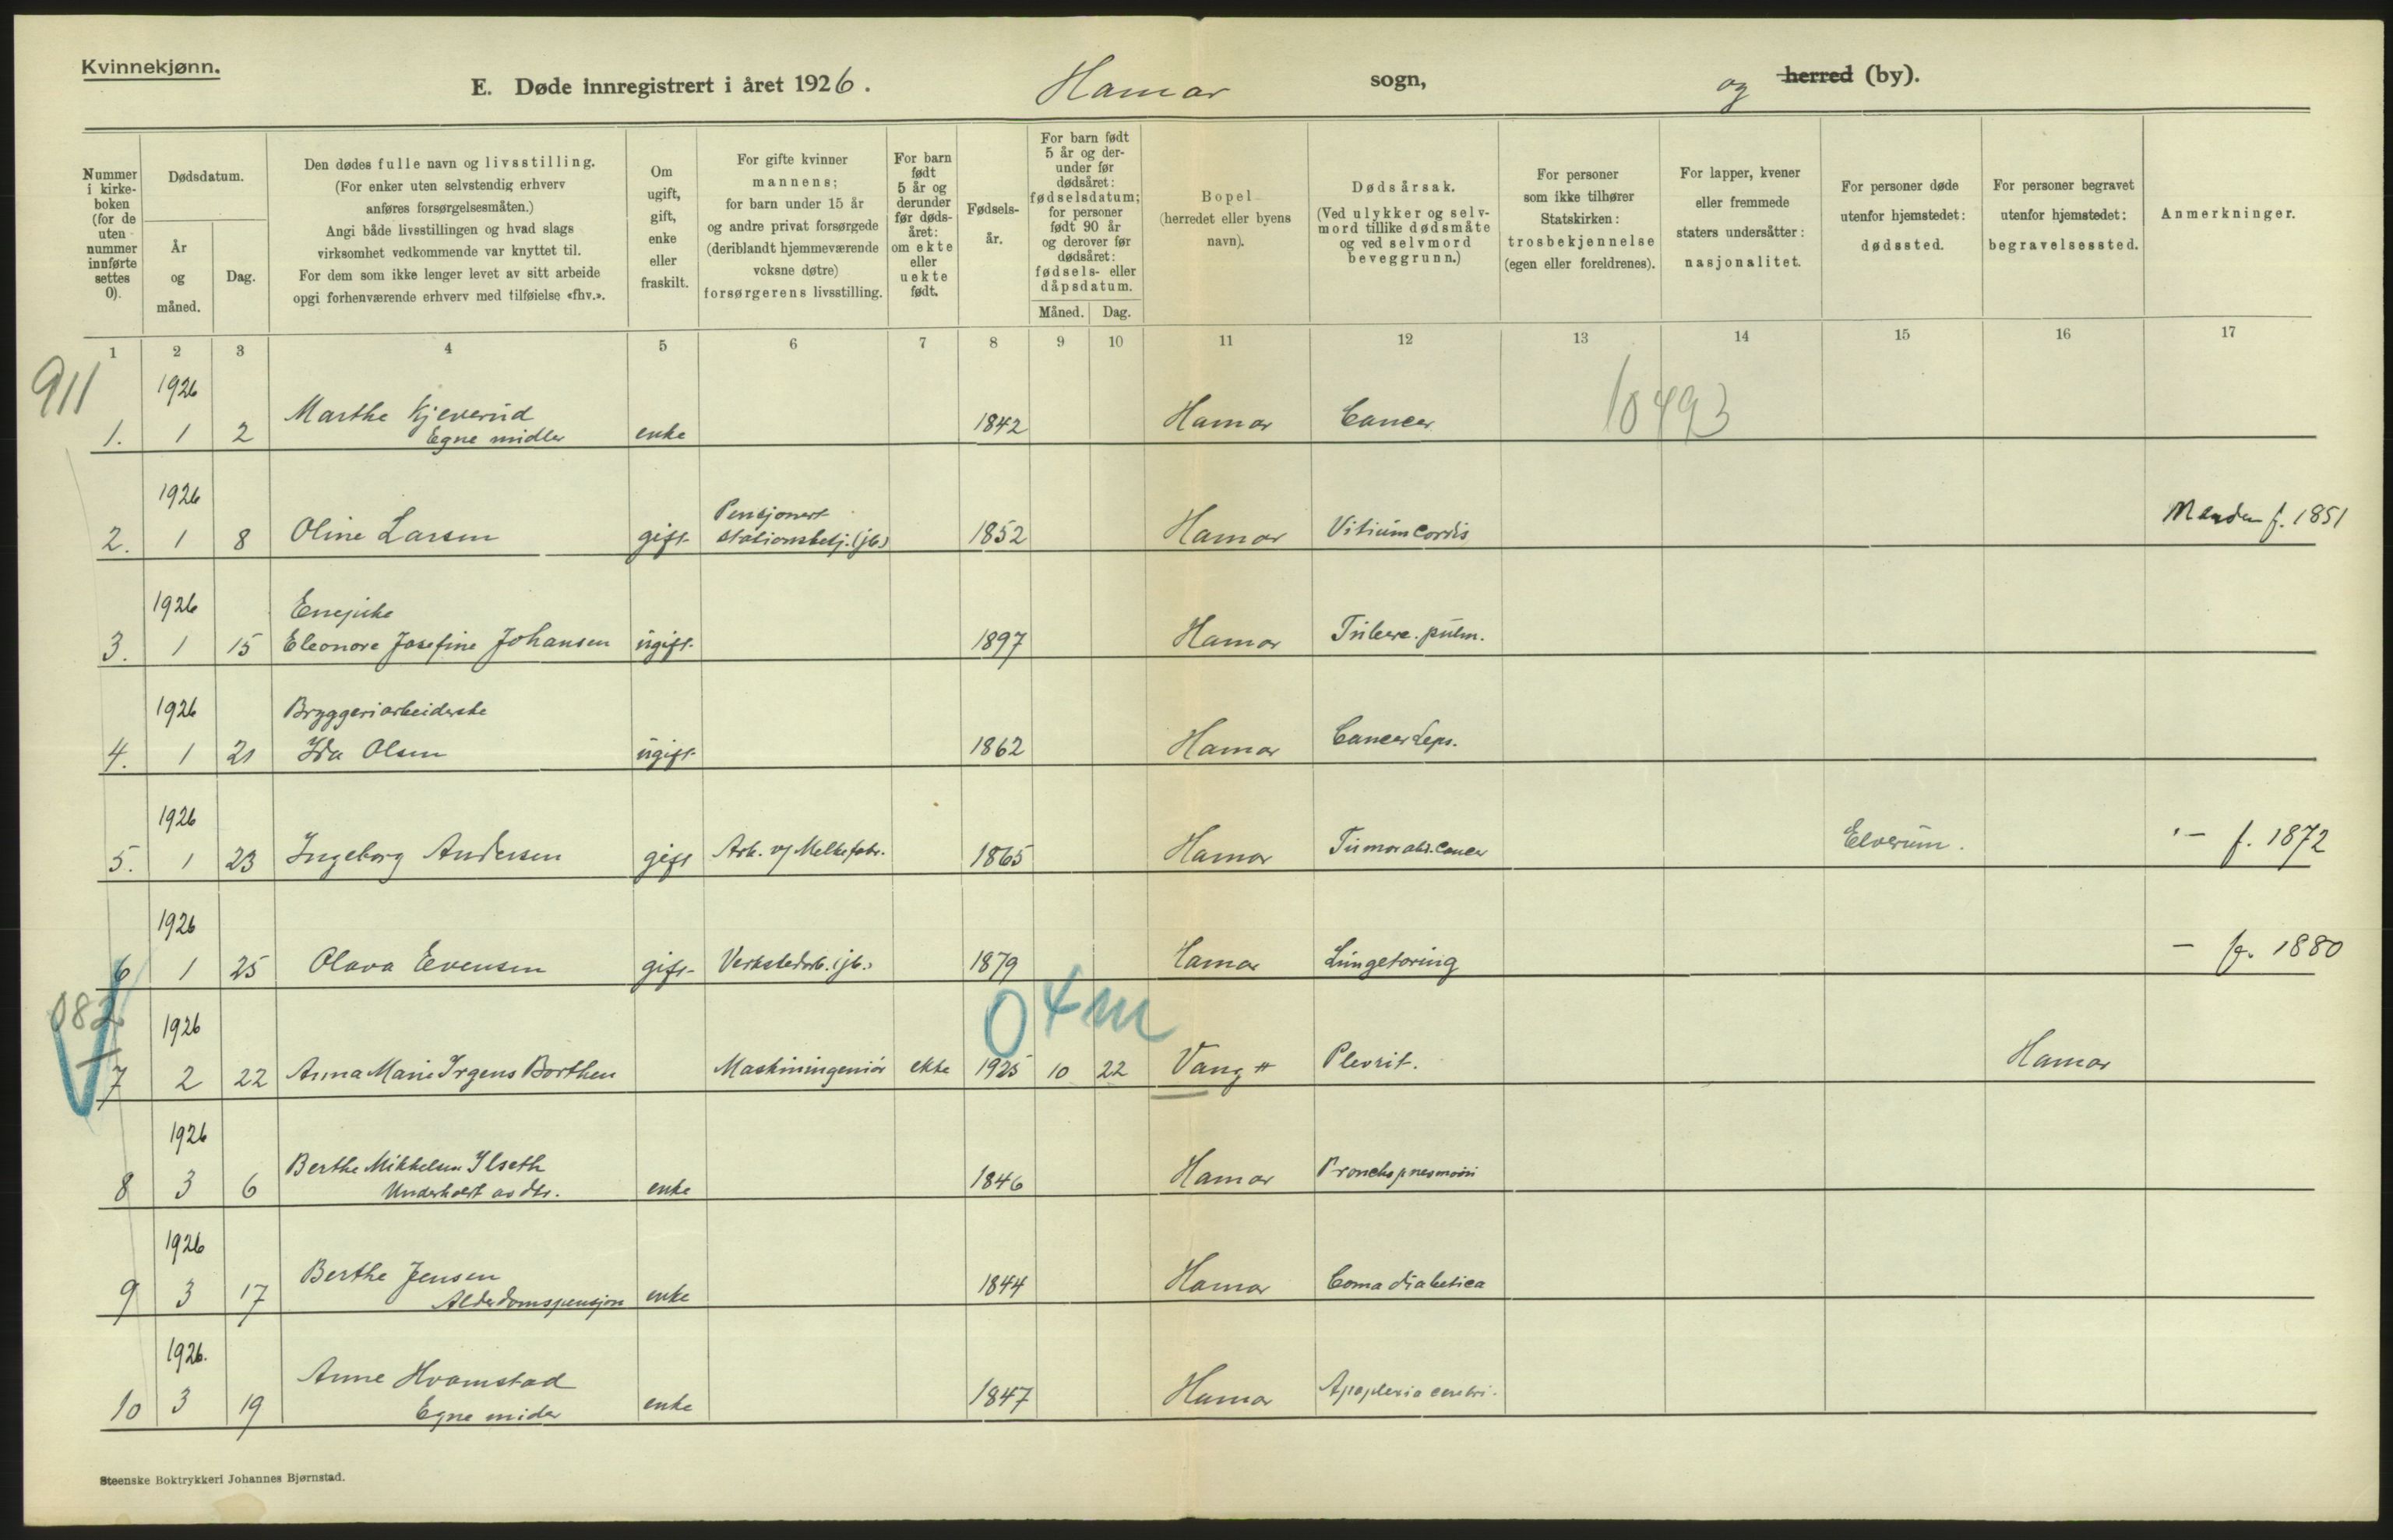 Kvinnekjønn.
E. Døde innregistrert i året 1926. Hamar sogn, og herred (by).
Nummer i kirkeboken (for de uten nummer innførte settes 0).
Dødsdatum.
År og måned.
Dag.
Den dødes fulle navn og livsstilling.
(For enker uten selvstendig erhverv
anføres forsørgelsesmåten.)
Angi både livsstillingen og hvad slags
virksomhet vedkommende var knyttet til.
For dem som ikke lenger levet av sitt arbeide
opgi forhenværende erhverv med tilføielse «fhv.».
Om
ugift,
gift,
enke
eller
fraskilt.
For gifte kvinner
mannens;
for barn under 15 år
og andre privat forsørgede
(deriblandt hjemmeværende
voksne døtre)
forsørgerens livsstilling.
For barn
født
5 år og
derunder
før døds-
året:
om ekte
eller
uekte
født.
Fødsels-
år.
For barn født
5 år og der-
under før
dødsåret:
fødselsdatum;
for personer
født 90 år
og derover før
dødsåret:
fødsels- eller
dåpsdatum.
Måned. Dag.
Bopel
(herredet eller byens
navn).
Dødsårsak.
(Ved ulykker og selv-
mord tillike dødsmåte
og ved selvmord
beveggrunn.)
For personer
som ikke tilhører
Statskirken:
trosbekjennelse
(egen eller foreldrenes).
For lapper, kvener
eller fremmede
staters undersåtter:
nasjonalitet.
For personer døde
utenfor hjemstedet:
dødssted.
For personer begravet
utenfor hjemstedet:
begravelsessted.
Anmerkninger.
1 2 3 4 5 6 7 8 9 10 11 12 13 14 15 16 17
911 1926 10493
Marthe Kjeverud
1. 1 2 Egne midler enke 1842 Hamar Cancer
1926 Pensjonert
2. 1 8 Oline Larsen gift stationsbetj. (jb.) 1852 Hamar Vitium cordis Manden f. 1851
1926
3. 1 15 Eleonore Josefine Johansen ugift 1897 Hamar Tuberc. pulm.
1926 Bryggeriarbeiderske
4. 1 21 Ida Olsen ugift 1862 Hamar Cancer
1926
5. 1 23 Ingeborg Andersen gift Arb. v/ Melkefabr. 1865 Hamar Tumor abd. Cancer Elverum. - f. 1872
1926
6 1 25 Olava Evensen gift Verkstedarb. (jb.) 1879 Hamar Lungetæring - f. 1880
082 1926 0 4 m
7 2 22 Anna Marie Irgens Borthen Maskiningeniør ekte 1925 10 22 Vang # Plevrit. Hamar
1926
Berthe Mikkelsen Ilseth
8 3 6 Underholdt av dtr. enke 1846 Hamar Bronchopneumoni
1926
Berthe Jensen
9 3 17 Alderdomspensjon enke 1844 Hamar Coma diabetica
1926.
Anne Hvamstad
10 3 19 Egne midler enke 1847 Hamar Apoplexia cerebri.
Steenske Boktrykkeri Johannes Bjørnstad.